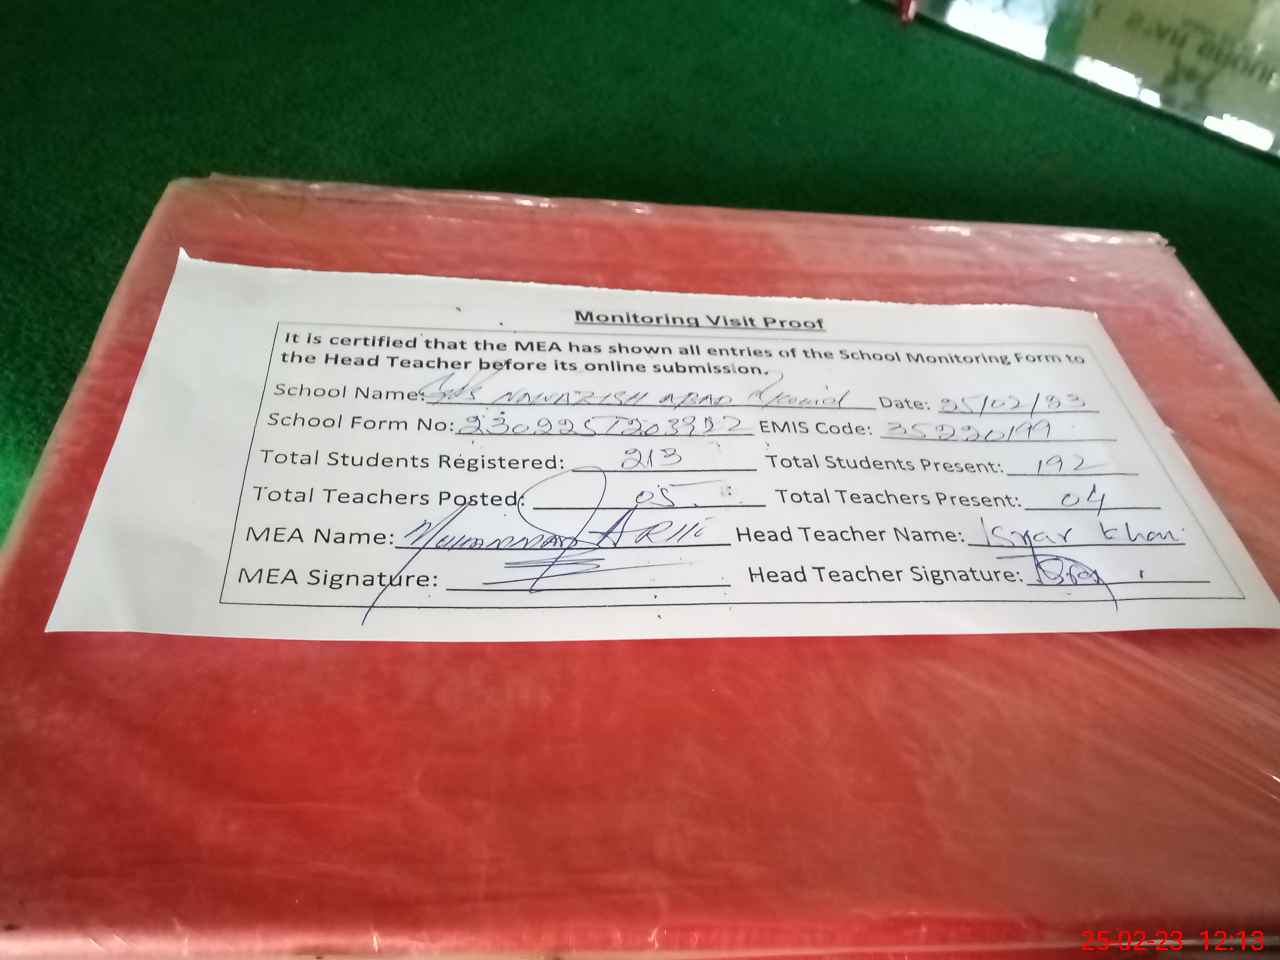 Monitoring Visit Proof
It is certified that the MEA has shown all entries of the School Monitoring Form to
the Head Teacher before its online submission.
School Name: NAWAZISH ABAD Date: 25/02/23
School Form No: EMIS Code: 35220199
Total Students Registered: 213 Total Students Present: 192
Total Teachers Posted: 05 Total Teachers Present: 04
MEA Name: MUHAMMAD Head Teacher Name: Khan
MEA Signature: Head Teacher Signature:
25-02-23 12:13